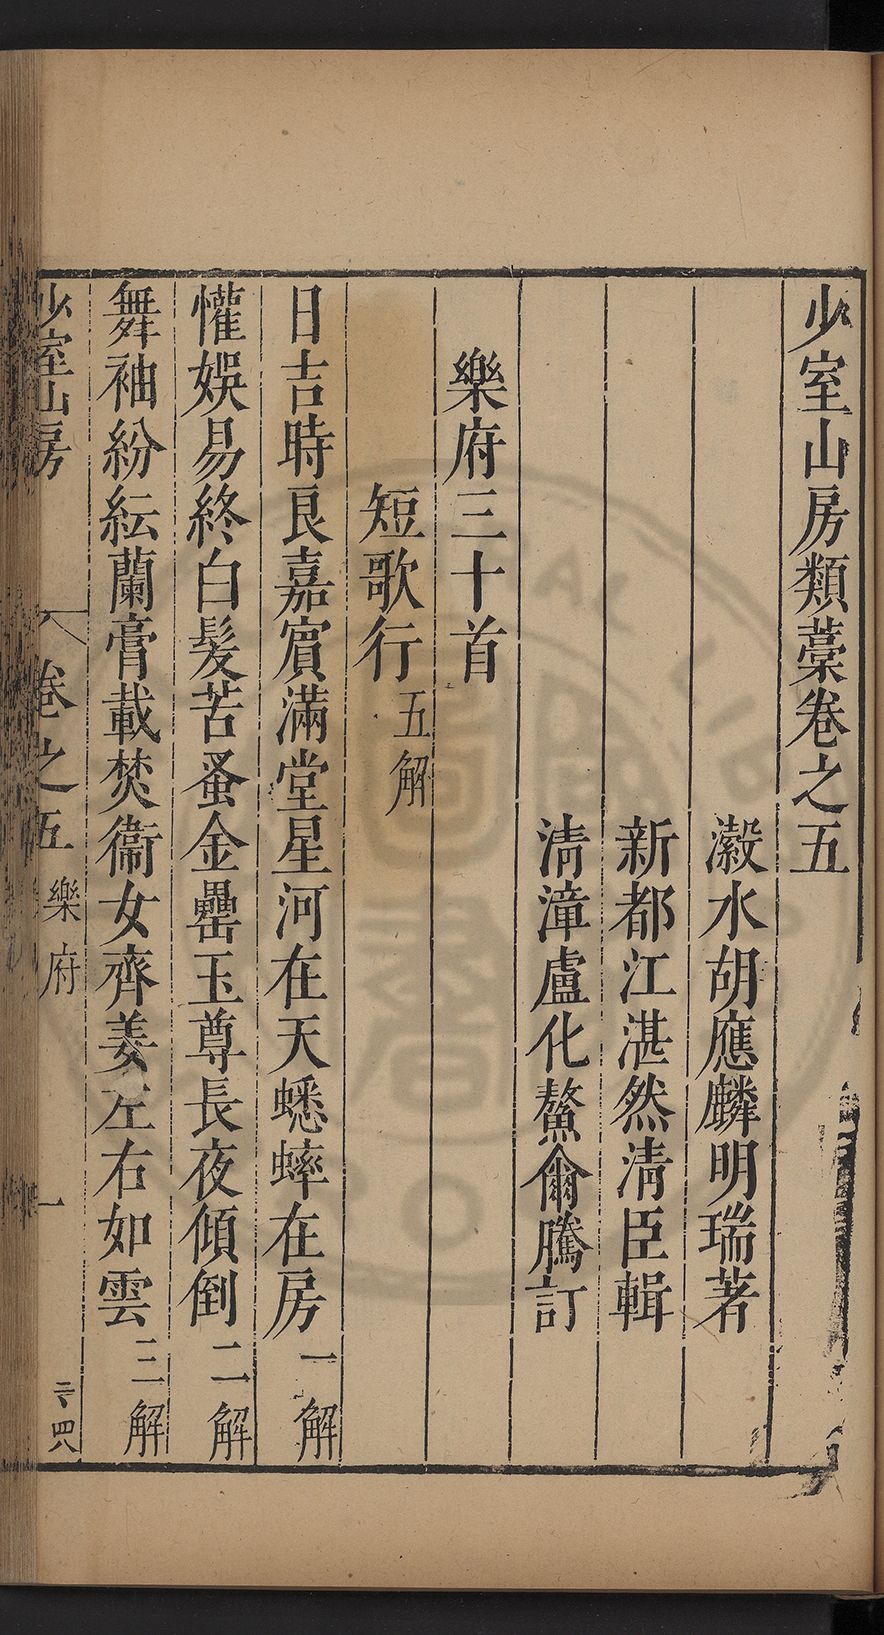 少室山房類藁卷之五
瀫水胡應麟明瑞著
新都江湛然清臣輯
清漳盧化鰲爾騰訂
樂府三十首
短歌行五解
日吉時良嘉賓滿堂星河在天蟋蟀在房一解
懽娛易終白髮苦蚤金罍玉尊長夜傾倒二解
舞袖紛紜蘭膏載焚衞女齊姜左右如雲三解
少室山房 卷之五 樂府 一